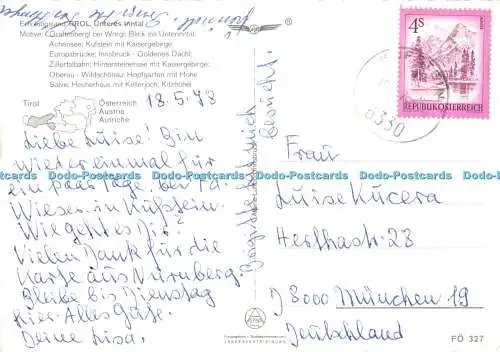 Erholungsland TIROL, Unteres Inntal
Motive: Grattenbergl bei Wörgl, Blick ins Unterinntal;
Achensee; Kufstein mit Kaisergebirge;
Europabrücke; Innsbruck - Goldenes Dachl;
Zillertalbahn; Hintersteinersee mit Kaisergebirge;
Oberau - Wildschönau; Hopfgarten mit Hohe
Salve; Hecherhaus mit Kellerjoch; Kitzbühel
Tirol
Österreich
Austria
Autriche
18.5.78
Liebe Luise! Bin
wieder einmal für
ein paar Tage bei Fa.
Wieser in Kufstein.
Wie geht es Dir?
Vielen Dank für die
Karte aus Nürnberg.
Bleibe bis Dienstag
hier. Alles Gute.
Deine Lisa.
besucht.
®
4S
REPUBLIK ÖSTERREICH
6330
Frau
Luise Kucera
Herthastr. 23
D 8000 München 19
Deutschland
LANDESVERTEIDIGUNG
FÖ 327
Dodo-Postcards Dodo-Postcards Dodo-Postcards Dodo-Postcards Dodo-Postcards